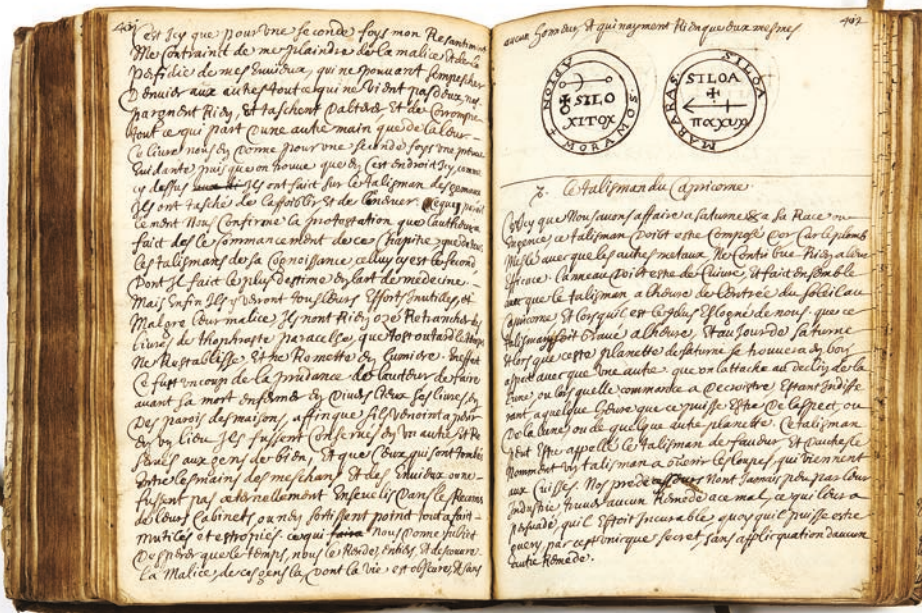 401
Cest Icy que pour une seconde foys mon Resantiment
Me Contrainct de me plaindre de la malice et de la
perfidie de mes Envieux, qui ne pouvant s'empescher
D'envier aux autres tout ce qui ne vient pas deux, nes-
pargnent Rien, Et taschent D'alterer Et de Corrompre
tout ce qui part D'une autre main que de la leur.
Ce livre nous en Donne pour une seconde foys une preuve
Evidante puis que on trouve que en C'est endroit Icy, comme
cy dessus Ils ont fait sur le talisman des gemeaux
Ils ont tasché de l'affoiblir et de l'enerver. Ce qui
cement Nous Confirme la protestation que l'autheur a
fait des le Commancement de ce Chapitre que de tous
les talismans de sa Cognoissance celluy cy est le second
Dont Il fait le plus destime en l'art de medecine.
Mais enfin Ils y verront tous leurs Efforts Inutilles, et
Malgre leur malice, Ils nont Rien oze Retrancher des
livres de theophraste paracelse, que tost ou tard le temps
Ne Restablisse Et ne Remette en lumiere. En effet
Ce fust un coup de la prudance de l'auteur de faire
avant sa mort enfermer en Divers lieux ses livres, en
Des parois des maisons, affinque sils venoint a perir
en un lieu Ils fussent Conservés en un autre, Et Re
servés aux gens de bien, Et que Ceux qui sont tombés
Entre les mains des meschans Et des Envieux ou ne
fussent pas eternellement Ensevelis Dans le
de leurs Cabinets, ou n'en sortissent point tout a fait
mutiles et estropies. ce qui nous donne subiet
Desperer que le temps, nous le Rendra entiers, Et descouvrira
la Malice, de ces gens la, Dont la vie est obscure, Et sans
402
aucun honneur Et qui nayment Rien que eux mesmes
APION + MORAMOS.
SILO
XITOX
SILOA MARARAS.
SILOA
παχυχ
7. Le talisman du Capricorne.
Icy que Nous avons affaire a saturne Et a sa Race ou
Engence, ce talisman Doibt estre Composé D'or Car le plomb
Meslé avec que les autres metaux, Ne Contribue Rien a leur
Efficace. L'anneau Doibt estre de Cuivre, Et fait ensemble
avec que le talisman a lheure de lentrée du soleil au
Capricorne Et lors quil est le plus Eslogné de nous. que ce
talisman soit Gravé a lheure, Et au Jour de saturne
Et lors que ceste planette de saturne se trouvera en bon
aspect avec que Une autre. que on l'attache au declin de la
Lune, ou lors quelle commande a Decroistre, Estant Indiffe
rant a quelque heure que ce puisse Estre De l'aspect, ou
De la lune, ou de quelque autre planette. Ce talisman
peut Estre appellé le talisman de faveur Et D'autres le
Nomment un talisman a guerir les loupes, qui viennent
aux Cuisses. Nos predecesseurs Nont Jamais peu par leur
Industrie trouver aucun Remede a ce mal, ce qui leur a
persuadé, quil Estoit Incurable, quoy quil puisse estre
guery, par cest unique secret, sans applicquation daucun
autre Remede.